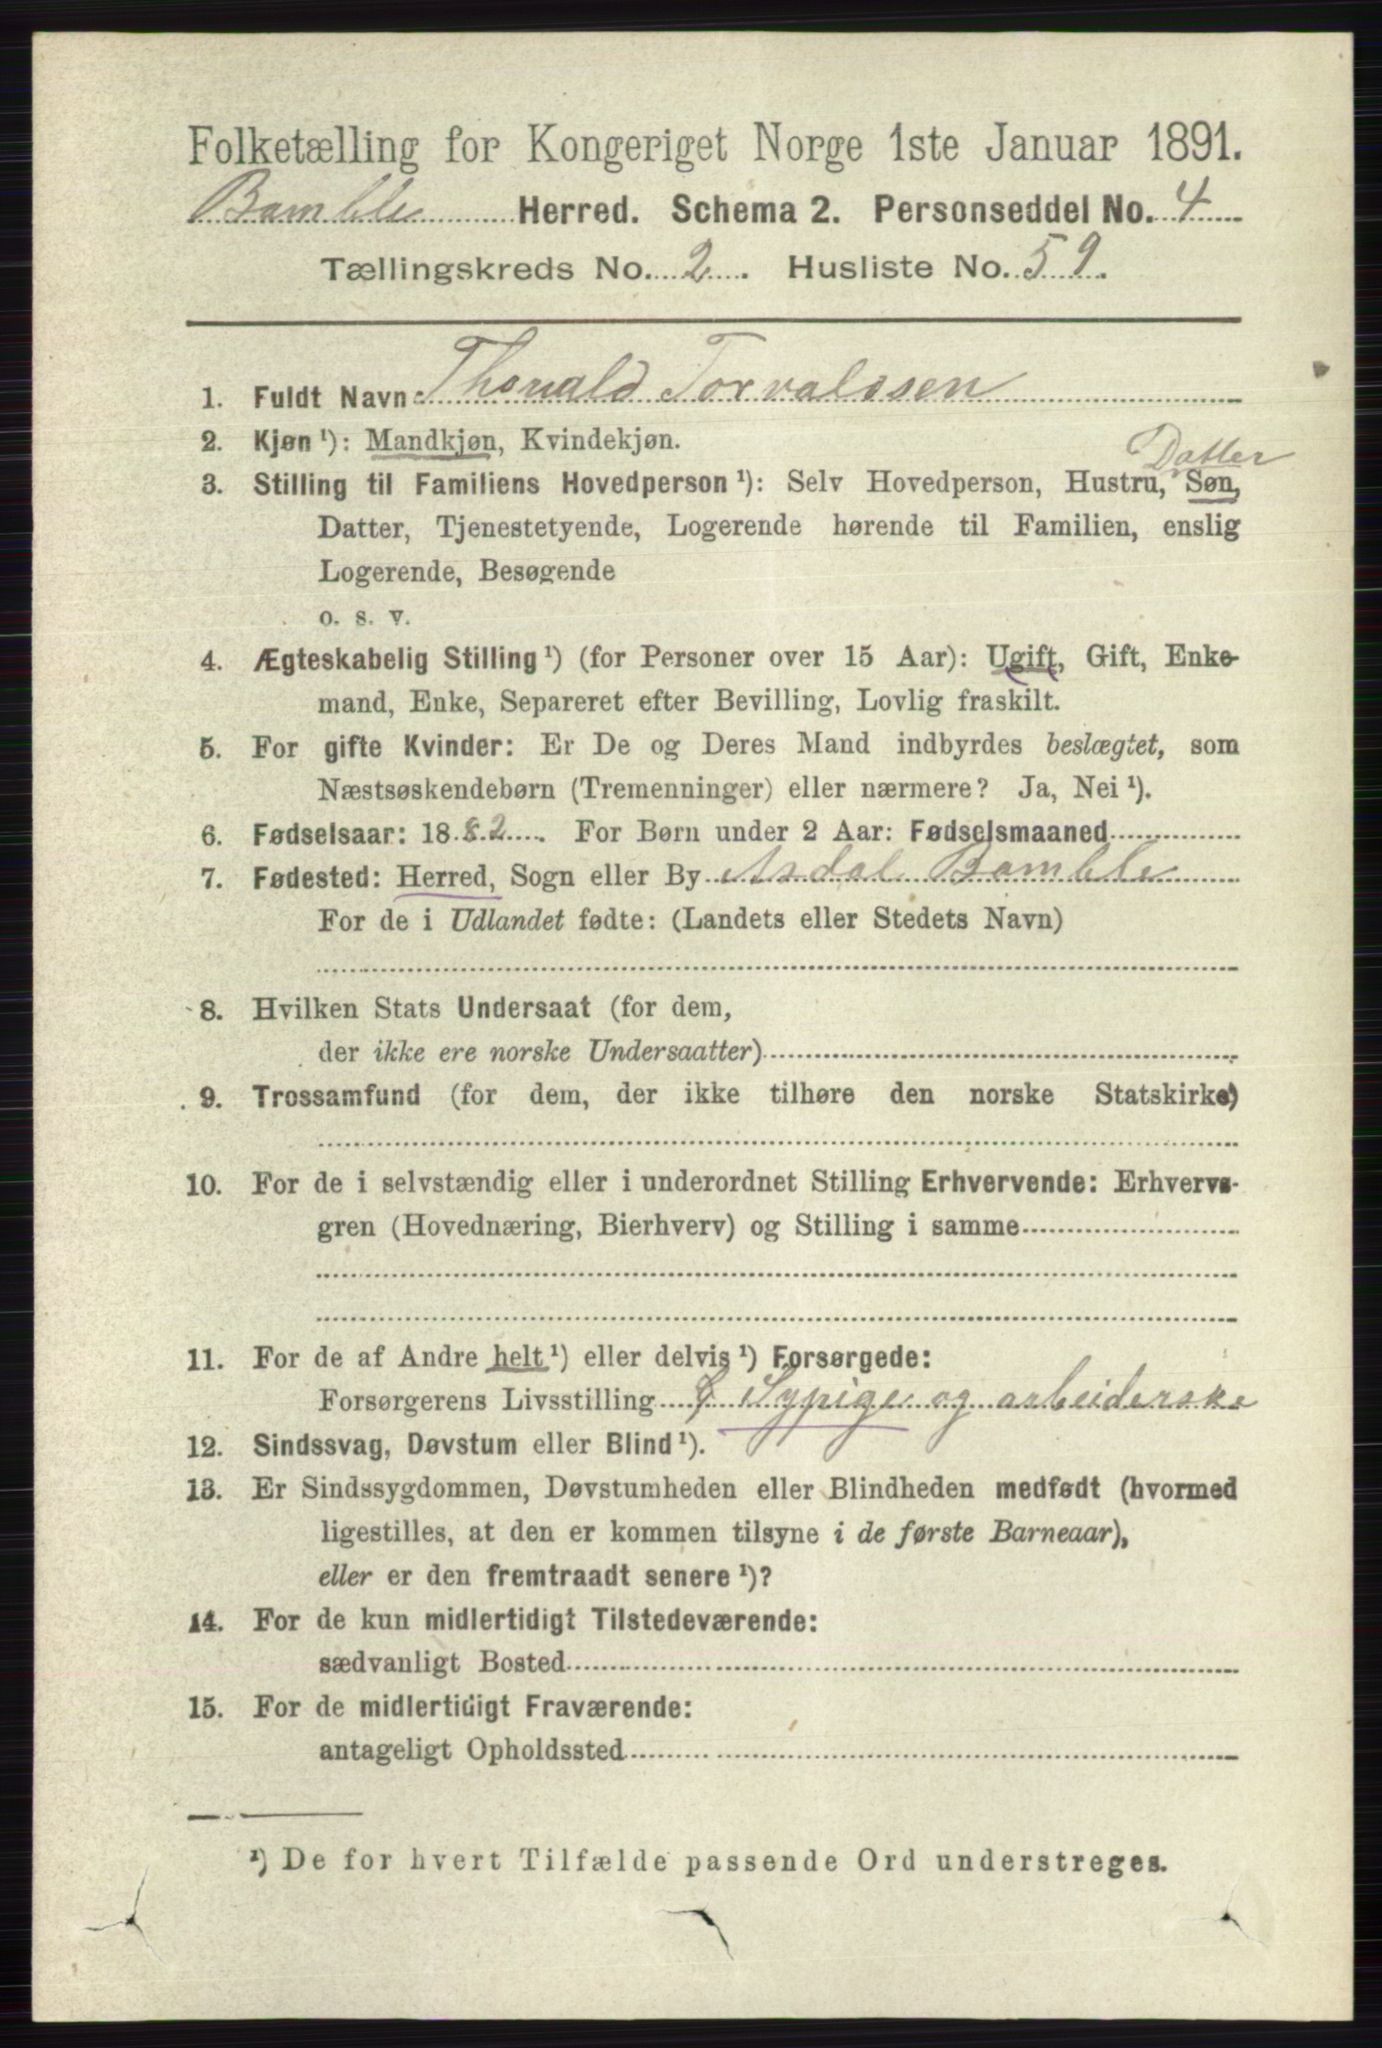 Folketælling for Kongeriget Norge 1ste Januar 1891.
Bamble Herred. Schema 2. Personseddel No. 4
Tællingskreds No. 2. Husliste No. 59.
1. Fuldt Navn: Thorvald Torvalsen
2. Kjøn ¹): Mandkjøn, Kvindekjøn.
Datter
3. Stilling til Familiens Hovedperson ¹): Selv Hovedperson, Hustru, Søn,
Datter, Tjenestetyende, Logerende hørende til Familien, enslig
Logerende, Besøgende
o. s. v.
4. Ægteskabelig Stilling ¹) (for Personer over 15 Aar): Ugift, Gift, Enke-
mand, Enke, Separeret efter Bevilling, Lovlig fraskilt.
5. For gifte Kvinder: Er De og Deres Mand indbyrdes beslægtet, som
Næstsøskendebørn (Tremenninger) eller nærmere? Ja, Nei ¹).
6. Fødselsaar: 1882. For Børn under 2 Aar: Fødselsmaaned
7. Fødested: Herred, Sogn eller By Asdal Bamble
For de i Udlandet fødte: (Landets eller Stedets Navn)
8. Hvilken Stats Undersaat (for dem,
der ikke ere norske Undersaatter)
9. Trossamfund (for dem, der ikke tilhøre den norske Statskirke)
10. For de i selvstændig eller i underordnet Stilling Erhvervende: Erhvervs-
gren (Hovednæring, Bierhverv) og Stilling i samme
11. For de af Andre helt ¹) eller delvis ¹) Forsørgede:
Forsørgerens Livsstilling Sypige og arbeiderske
12. Sindssvag, Døvstum eller Blind ¹).
13. Er Sindssygdommen, Døvstumheden eller Blindheden medfødt (hvormed
ligestilles, at den er kommen tilsyne i de første Barneaar),
eller er den fremtraadt senere ¹)?
14. For de kun midlertidigt Tilstedeværende:
sædvanligt Bosted
15. For de midlertidigt Fraværende:
antageligt Opholdssted
¹) De for hvert Tilfælde passende Ord understreges.